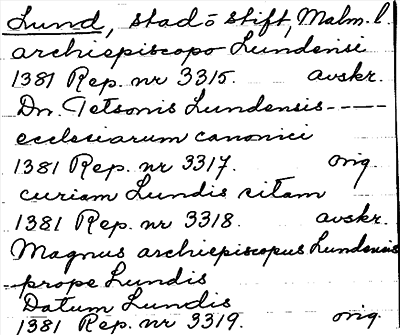 Lund, stad o stift, Malm. l.
archiepiscopo Lundensi
1381 Rep. nr 3315. avskr.
Dn. Tetsonis Lundensis-----
ecclesiarum canonici
1381 Rep. nr 3317. orig
curiam Lundis sitam
1381 Rep. nr 3318. avskr.
Magnus archiepiscopus Lundensis
prope Lundis
Datum Lundis
1381 Rep. nr 3319. orig.